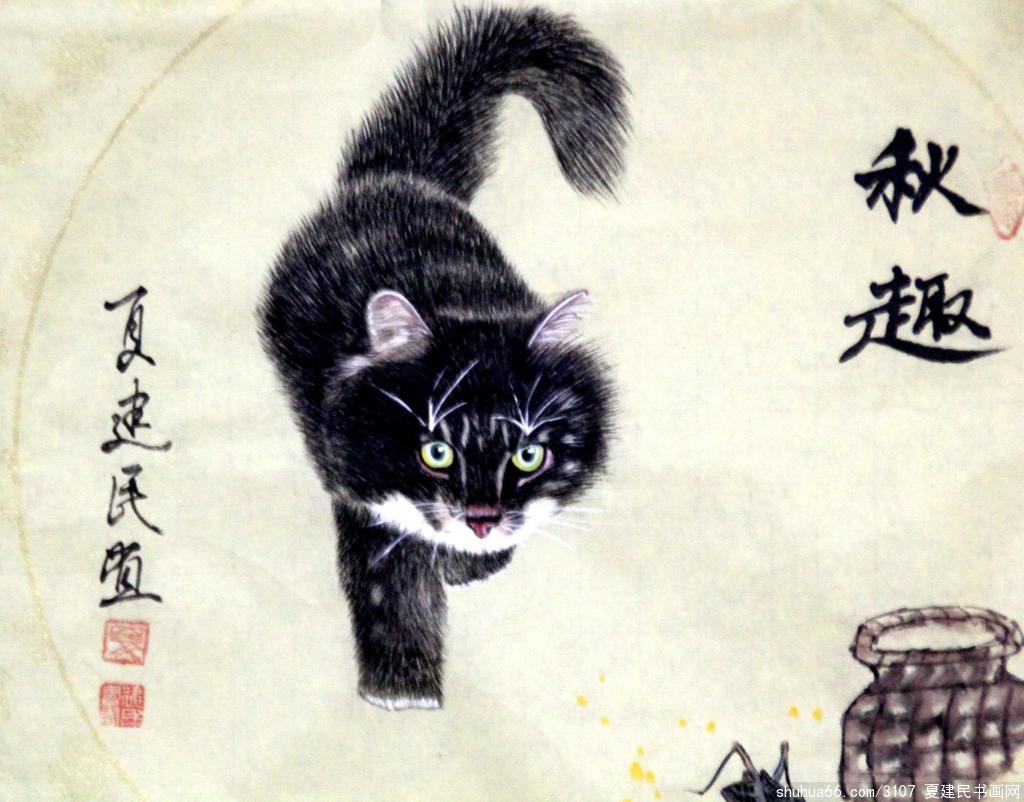 秋趣
夏建民画
shuhua66.com/3107 夏建民书画网